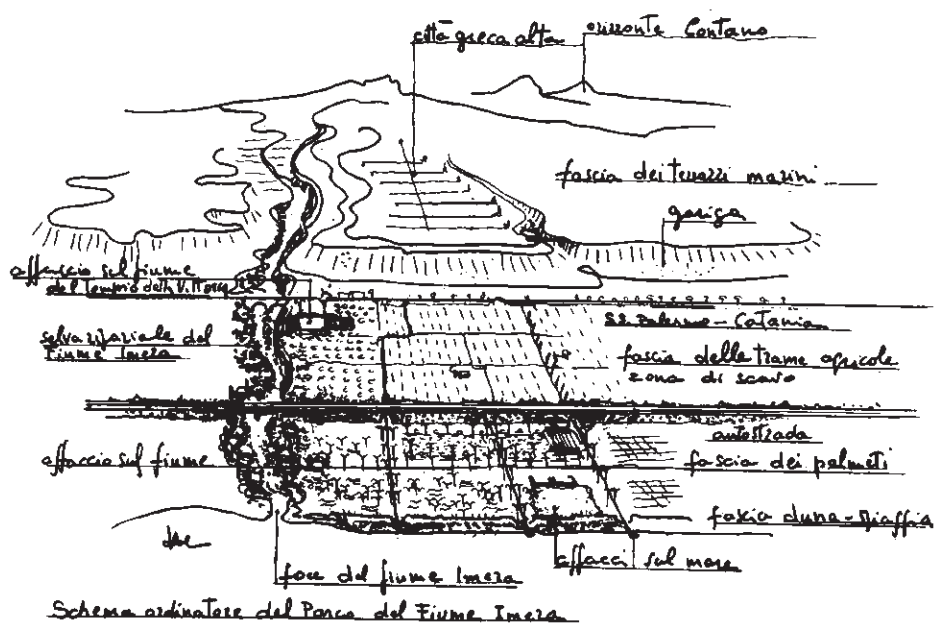 città greca alta
orizzonte Contano
fascia dei terrazzi marini
gariga
affaccio sul fiume
del Tempio della Vittoria
S.S. Palermo - Catania
selva ripariale del
Fiume Imera
fascia delle trame agricole
zona di scavo
autostrada
affaccio sul fiume
fascia dei palmeti
fascia duna-spiaggia
affacci sul mare
foce del fiume Imera
Schema ordinatore del Parco del Fiume Imera